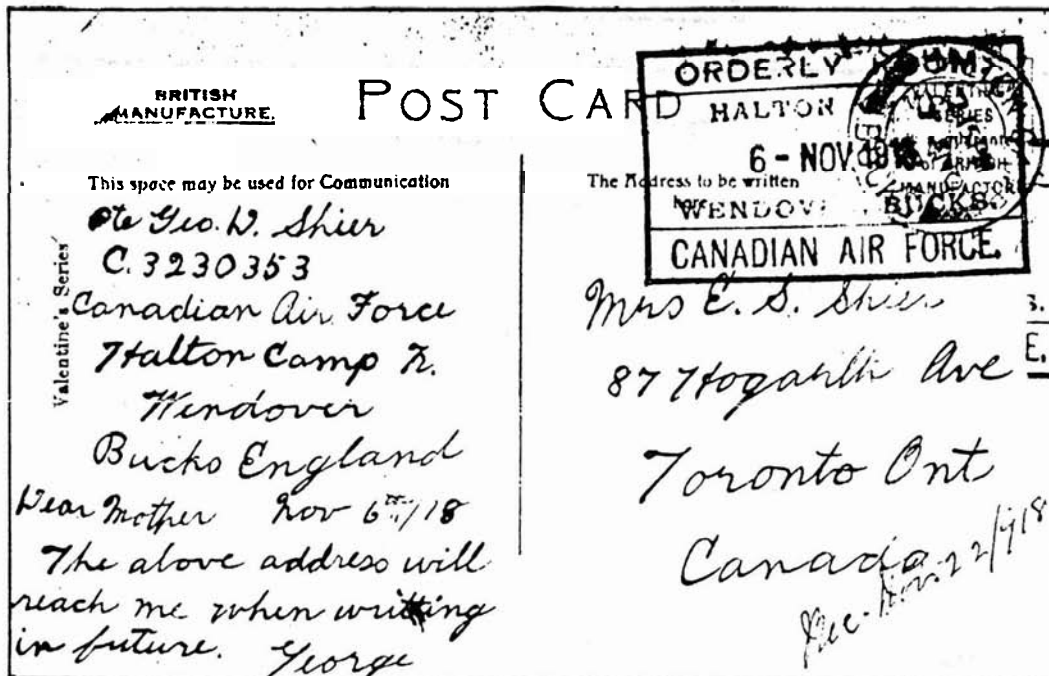 BRITISH
MANUFACTURE.
POST CARD
ORDERLY
HALTON
6 - NOV. 1918
WENDOV BUCKS.
CANADIAN AIR FORCE.
VALENTINE'S
SERIES
BRITISH
MANUFACTURE
This space may be used for Communication
The Address to be written
here
Valentine's Series
Pte Geo. W. Shier
C. 3230353
Canadian Air Force
Halton Camp N.
Wendover
Bucks England
Dear Mother Nov 6th/18
The above address will
reach me when writting
in future. George
Mrs E. S. Shier
87 Hogarth Ave
Toronto Ont
Canada
Rec. Nov. 22/1918
S.
E.